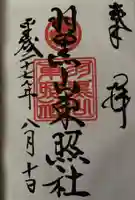 奉拝
羽黒山東照社
平成二十八年八月十日